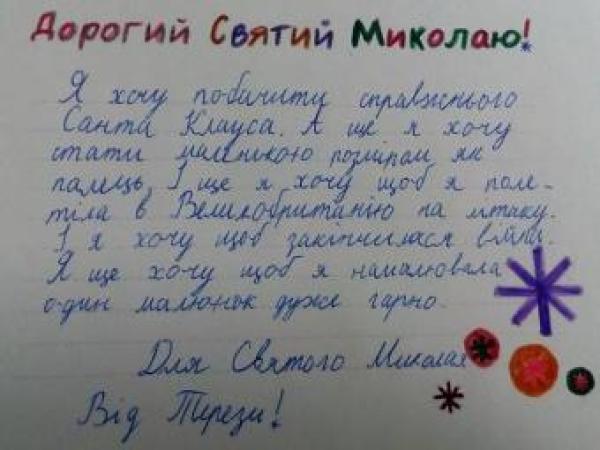 Дорогий Святий Миколаю!
Я хочу побачити справжнього
Санта Клауса. А ще я хочу
стати маленькою розміром як
палець. І ще я хочу щоб я поле-
тіла в Великобританію на літаку.
І я хочу щоб закінчилася війна.
Я ще хочу щоб я намалювала
один малюнок дуже гарно.
Для Святого Миколая
Від Терези!